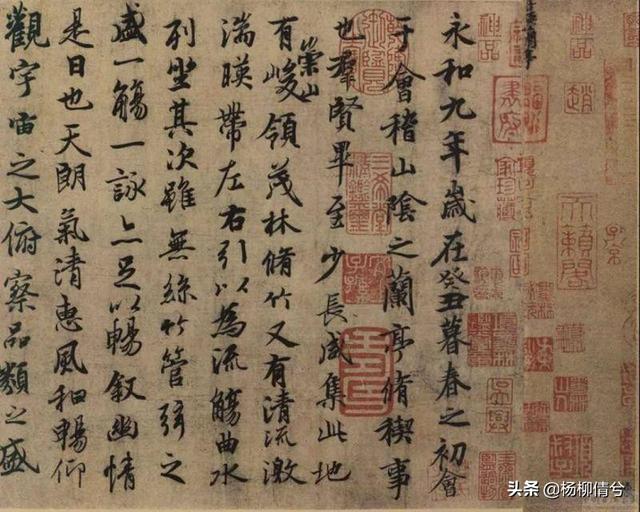 神品
趙
天籟閣
神品
永和九年歲在癸丑暮春之初會
于會稽山陰之蘭亭脩稧事
也羣賢畢至少長咸集此地
有崇山峻領茂林脩竹又有清流激
湍暎帶左右引以為流觴曲水
列坐其次雖無絲竹管弦之
盛一觴一詠亦足以暢敘幽情
是日也天朗氣清惠風和暢仰
觀宇宙之大俯察品類之盛
头条 @杨柳倩兮